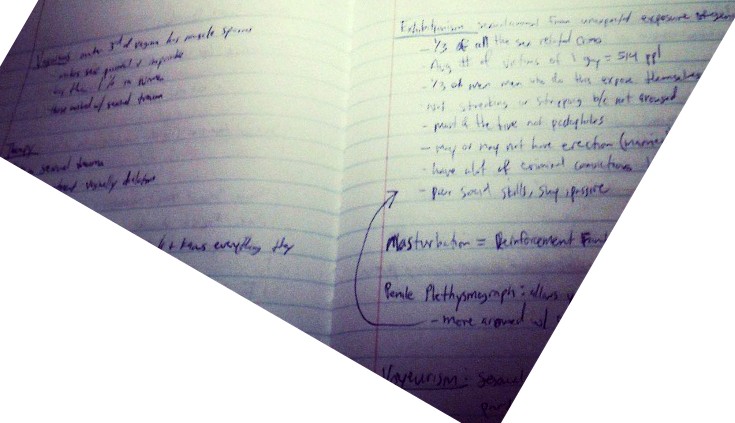 Vaginismus: outer 3rd of vagina has muscle spasms
makes sex painful &
less than 1% in women
associated w/ sexual trauma
Therapy
sexual trauma
vaginally dilation
& trains everything else
Exhibitionism: sexual arousal from unexpected exposure strangers
- 1/3 of all the sex related crimes
- Avg # of victims of 1 guy = 514 ppl
- 1/3 of men who do this expose themselves
- Not streaking or stripping b/c not aroused
- most of the time not pedophiles
- may or may not have erection (married
- have alot of criminal convictions
- poor social skills, shy, passive
Masturbation = Reinforcement
Penile Plethysmograph: allows
- more aroused w/
Voyeurism: Sexual